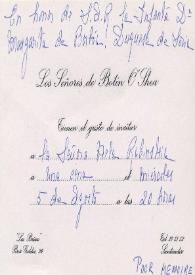 En honor de S.A.R. la Infanta Dª
Margarita de Borbón, Duquesa de Soria
Los Señores de Botín O'Shea
Tienen el gusto de invitar
a la Señora Aída Rubinstein
a una cena el miércoles
5 de Agosto a las 20 horas
"La Reina"
Pérez Galdós, 30
Santander
POUR MEMOIRE